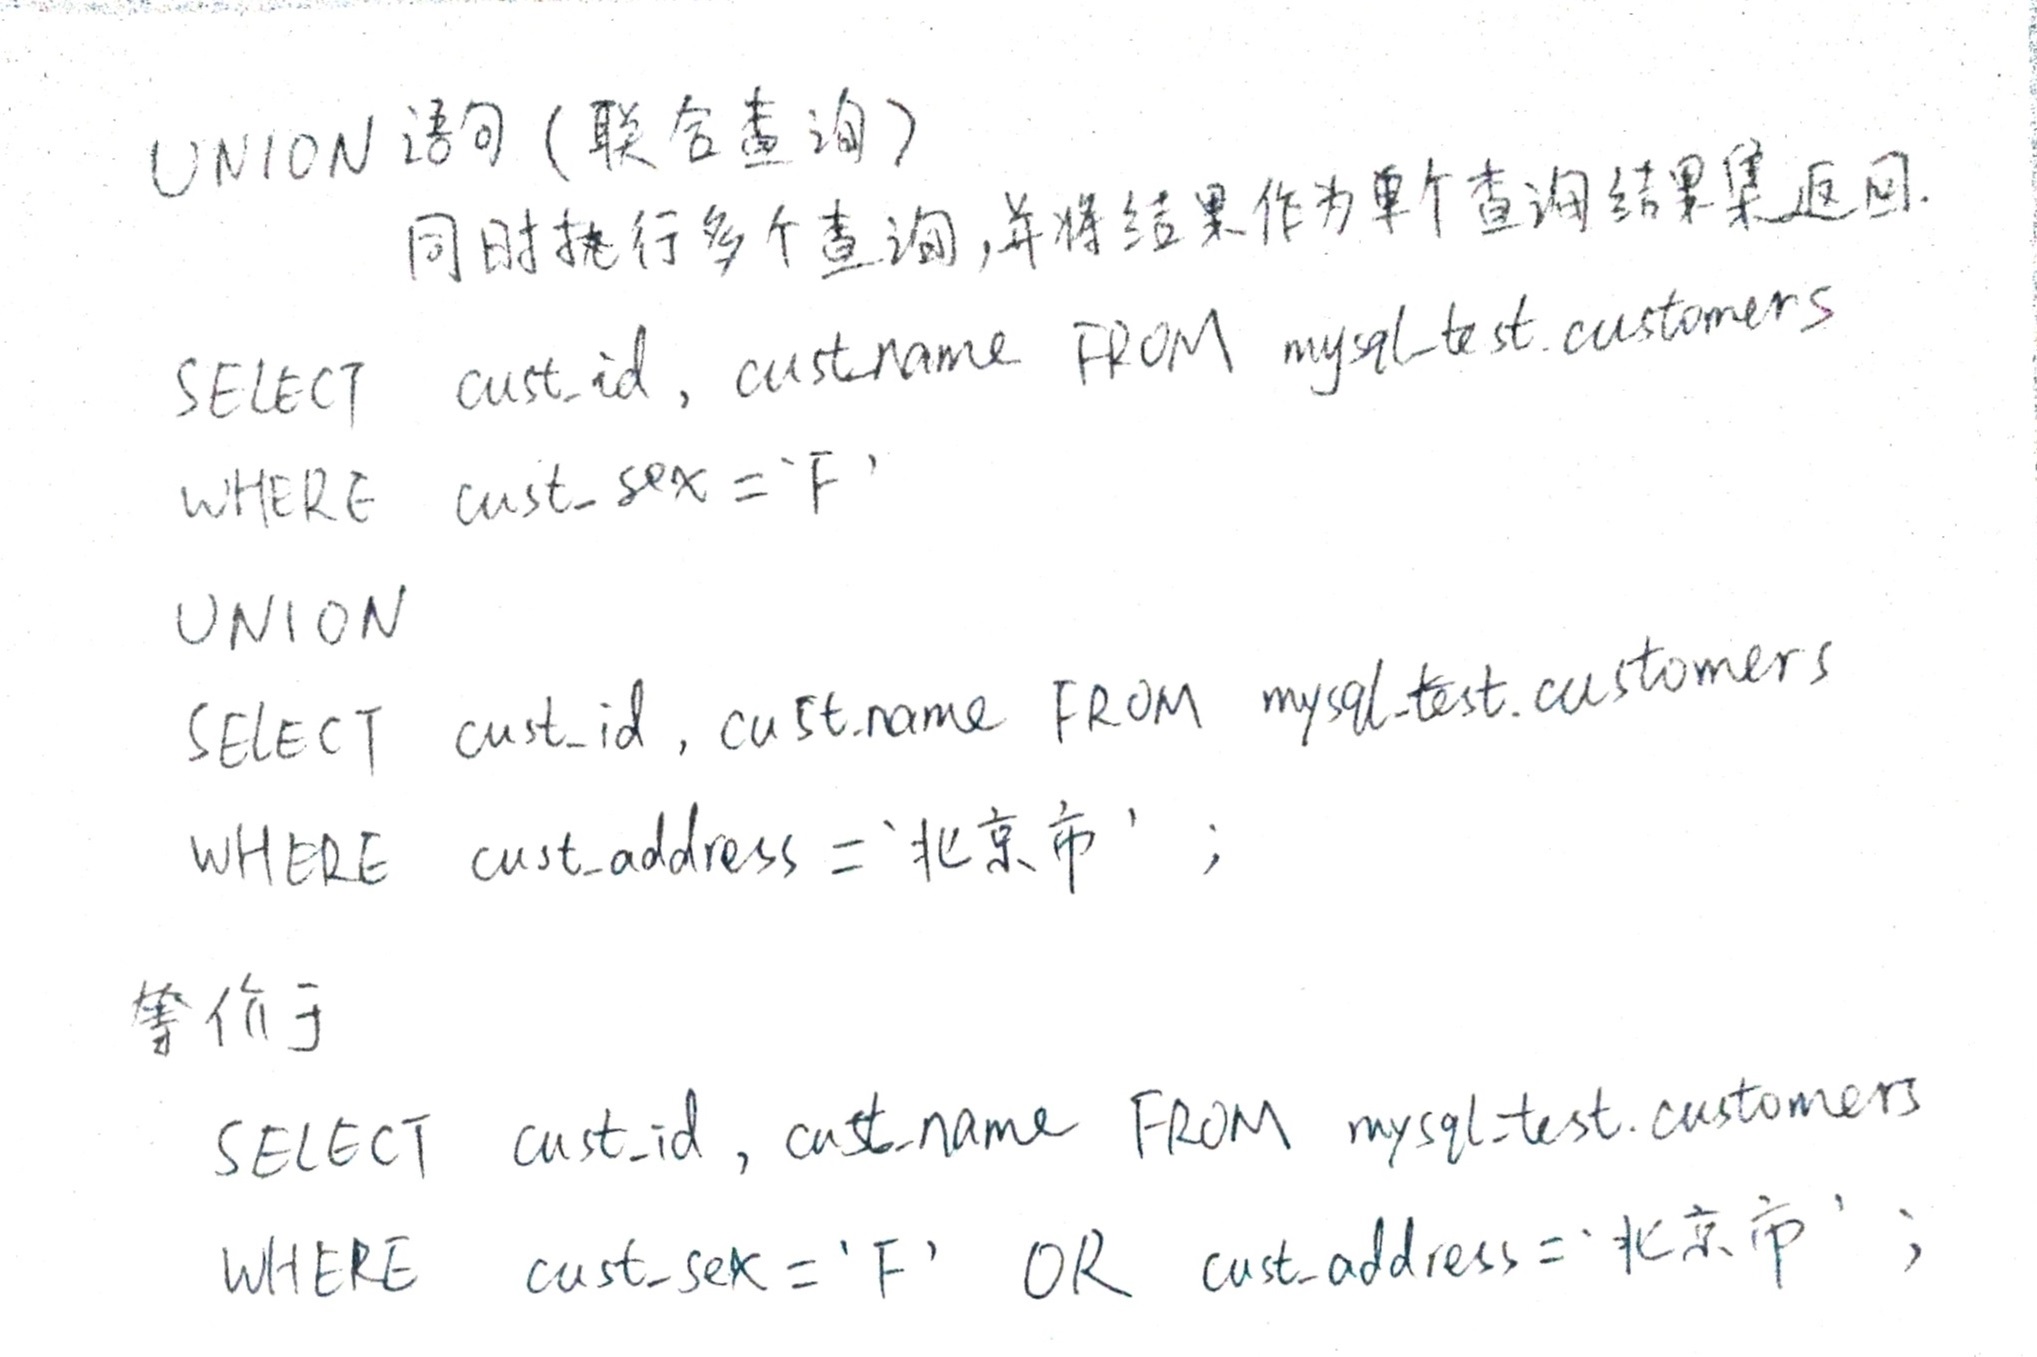 UNION 语句（联合查询）
同时执行多个查询,并将结果作为单个查询结果集返回.
SELECT cust_id, cust_name FROM mysql_test.customers
WHERE cust_sex = 'F'
UNION
SELECT cust_id, cust_name FROM mysql_test.customers
WHERE cust_address = '北京市' ;
等价于
SELECT cust_id, cust_name FROM mysql_test.customers
WHERE cust_sex = 'F' OR cust_address = '北京市' ;